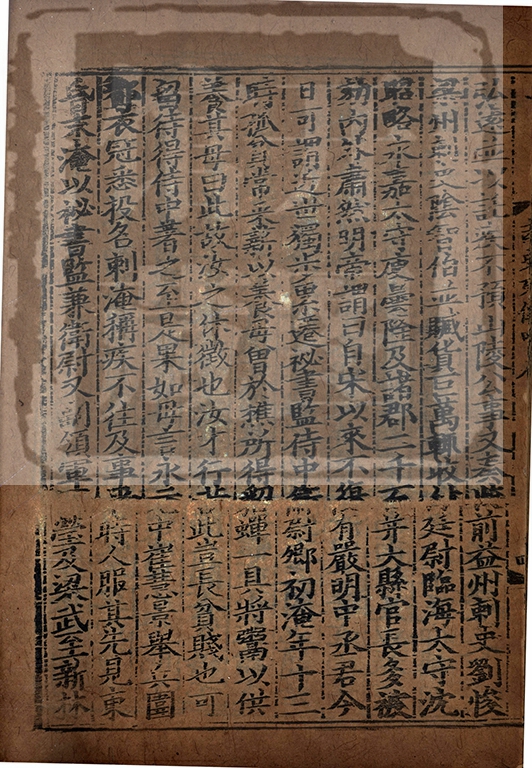 弘遠並以託疾不預山陵公事又奏收前益州刺史劉悛
梁州刺史陰智伯並贓貨巨萬輒收付廷尉臨海太守沈
昭略永嘉太守庾曇隆及諸郡二千石并大縣官長多被
劾內外肅然明帝謂曰自宋以來不復有嚴明中丞君今
日可謂近世獨步累遷祕書監侍中衛尉卿初淹年十三
時孤貧常采薪以養母曾於樵所得貂蟬一具將鬻以供
養其母曰此故汝之休徵也汝才行若此豈長貧賤也可
留待得侍中著之至是果如母言永元中崔慧景舉兵圍
都衣冠悉投名刺淹稱疾不往及事平時人服其先見東
昏末淹以祕書監兼衛尉又副領軍王瑩及梁武至新林